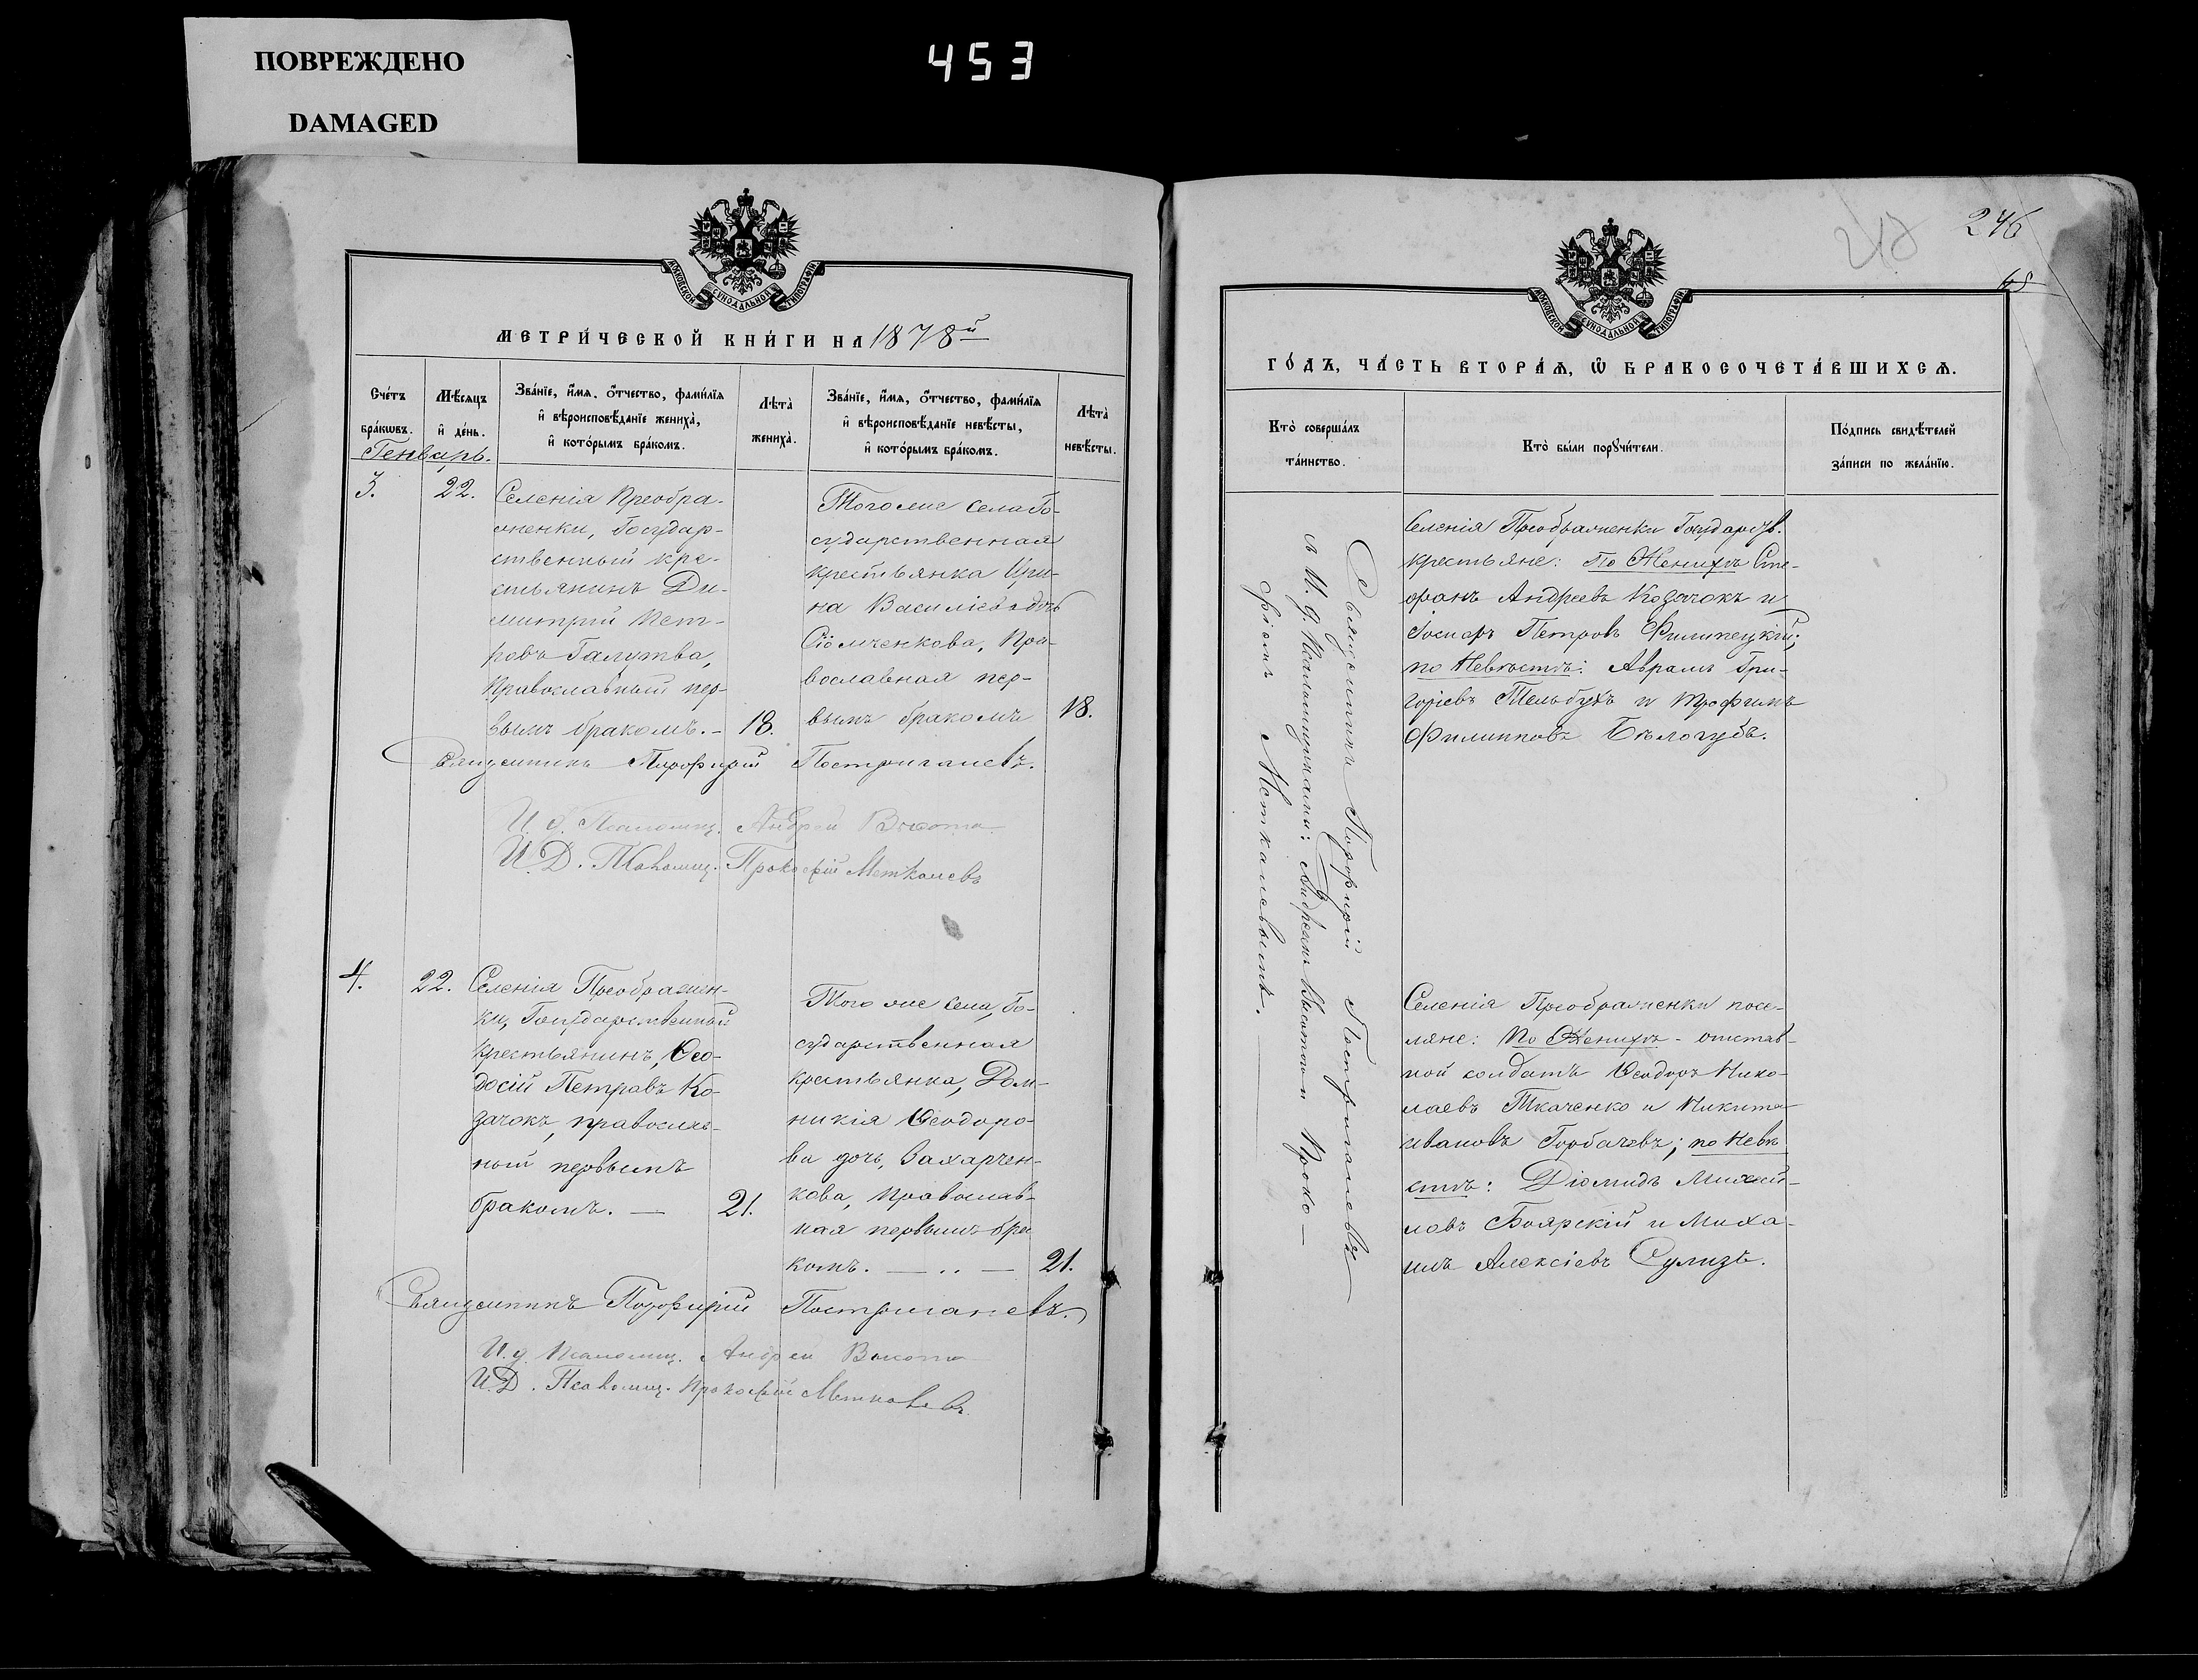 ПОВРЕЖДЕНО
DAMAGED
453
МОСКОВСКОЙ СѴНОДАЛЬНОЙ ТИПОГРАФІИ
МЕТРИ́ЧЕСКОЙ КНИ́ГИ НА 1878й
Сче́тъ бра́кωвъ.
Мѣ́сяцъ и҆ де́нь.
Зва́нїе, и҆́мѧ, ѻ҆́тчество, фами́лїѧ
и҆ вѣроисповѣ́данїе жениха̀,
и҆ кото́рымъ бра́комъ.
Лѣ́та̀ жениха̀.
Зва́нїе, и҆́мѧ, ѻ҆́тчество, фами́лїѧ
и҆ вѣроисповѣ́данїе невѣ́сты,
и҆ кото́рымъ бра́комъ.
Лѣ́та̀ невѣ́сты.
Генварь.
3.
22.
Селенія Преобра-
женки, Государ-
ственный кре-
стьянинъ Ди-
митрій Пет-
ровъ Галушва,
Православный пер-
вымъ бракомъ. -
18.
Тогоже села Го-
сударственная
крестьянка Ири-
на Василіева дочь
Сіомченкова, Пра-
вославная пер-
вымъ бракомъ
18.
Священникъ Порфирій Постригачевъ.
И. д. Псаломщ. Андрей Высота
И. Д. Псаломщ. Прокофій Меткалевъ
4.
22.
Селенія Преображен-
ки, Государственный
крестьянинъ, Ѳео-
досій Петровъ Ко-
зачокъ, православ-
ный первымъ
бракомъ. —
21.
Того же села, Го-
сударственная
крестьянка, Дом-
никія Ѳеодоро-
ва дочь, Захарчен-
кова, православ-
ная первымъ бра
комъ. — .. —
21.
Священникъ Порфирій Постригачевъ.
И. д. Псаломщ. Андрей Высота
И. Д. Псаломщ. Прокофій Меткалевъ
246
МОСКОВСКОЙ СѴНОДАЛЬНОЙ ТИПОГРАФІИ
ГО́ДЪ, ЧА́СТЬ ВТОРА́Ѧ, Ѽ БРАКОСОЧЕТА́ВШИХСѦ.
Кто̀ соверша́лъ
та́инство.
Кто̀ бы́ли порꙋчи́тели.
По́дпись свидѣ́телей
за́писи по жела́нїю.
Священникъ Порфирій Постригачевъ
съ И. д. Псаломщиками: Андреемъ Высотою и Проко-
фіемъ Меткалевымъ.
Селенія Преображенки Государств.
крестьяне: По Женихѣ Сте-
фанъ Андреевъ Козачокъ и
Іосифъ Петровъ Филипецкій;
по Невѣстѣ: Аврамъ Гри-
горіевъ Тельбухъ и Трофимъ
Филипповъ Бѣлогубъ.
Селенія Преображенки посе-
ляне: По Женихѣ - отстав-
ной солдатъ Ѳеодоръ Нико-
лаевъ Ткаченко и Никита
Ивановъ Горбачевъ; по Невѣ
стѣ: Діомидъ Михай-
ловъ Боярскій и Миха-
илъ Алексіевъ Сулизъ.